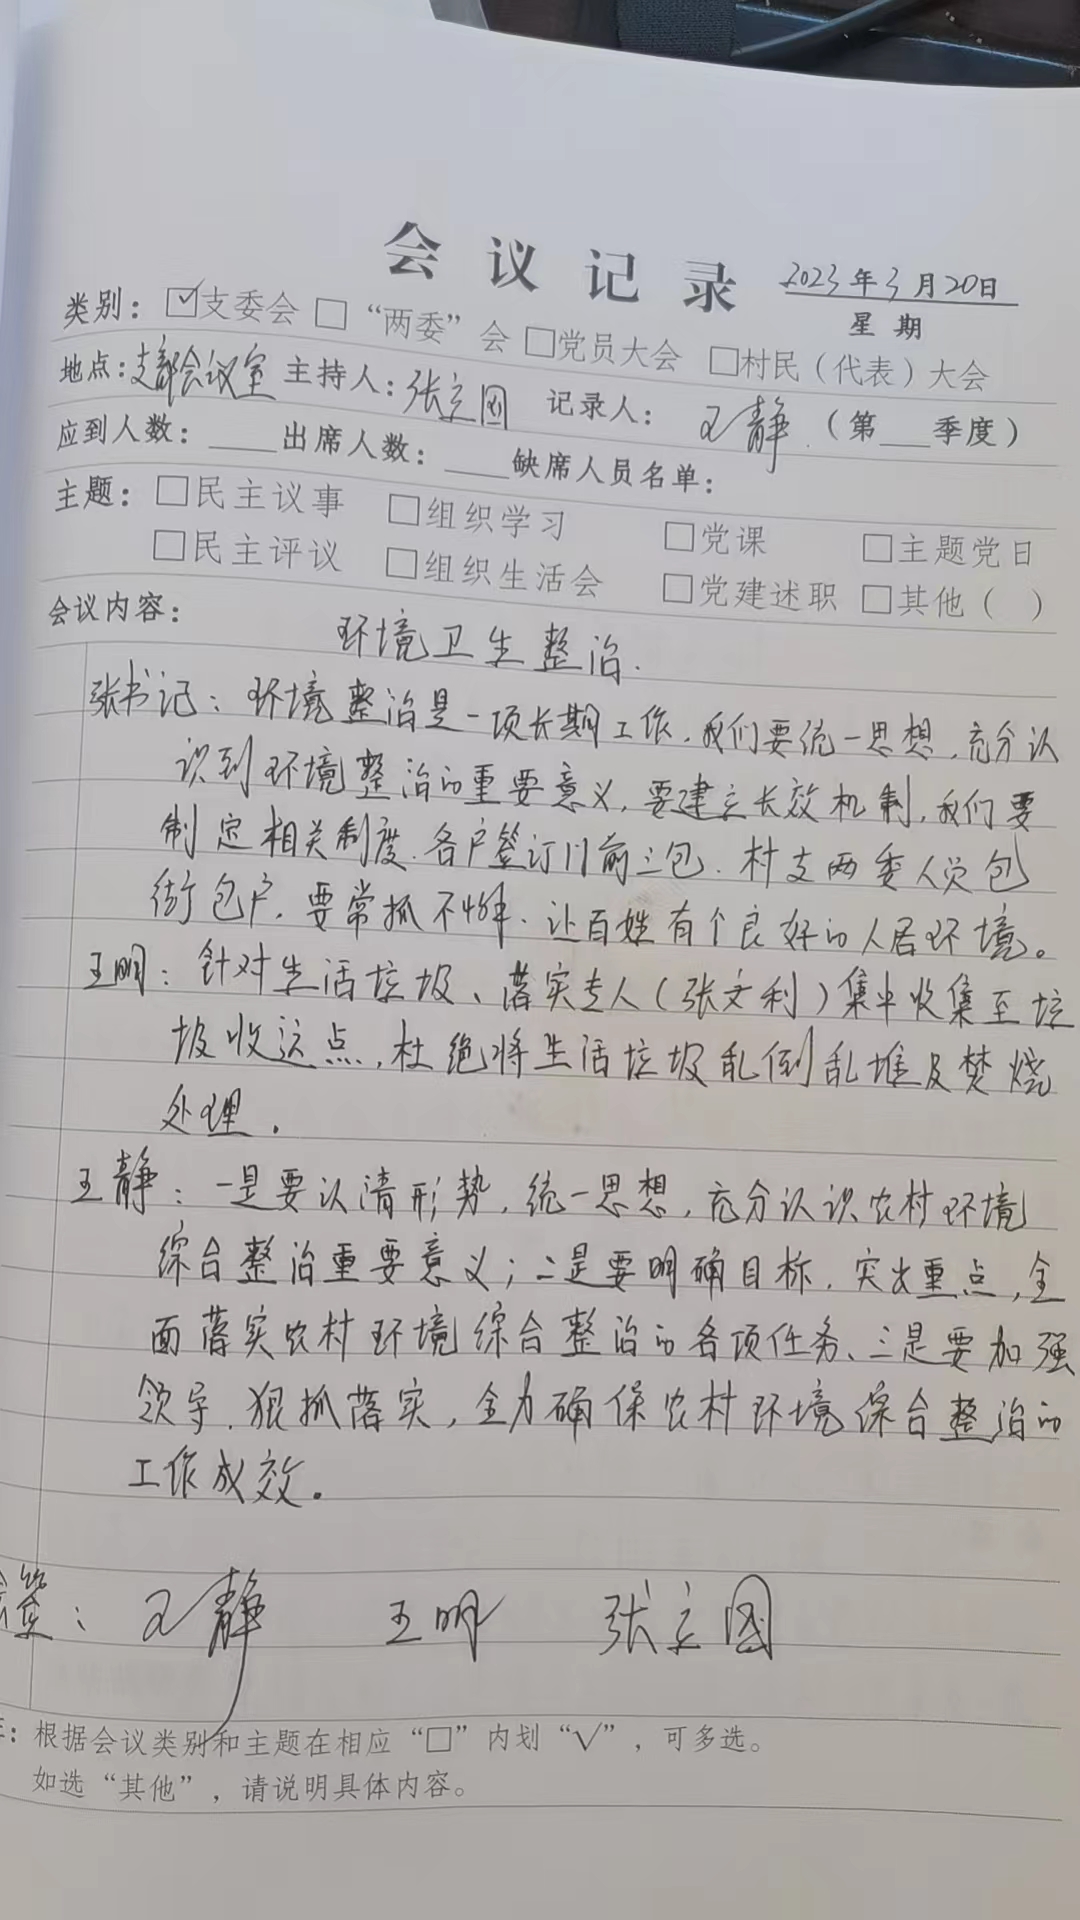 会议记录 2023年3月20日
星期
类别：☑支委会 □“两委”会 □党员大会 □村民（代表）大会
地点：支部会议室 主持人：张立国 记录人：王静（第___季度）
应到人数：____出席人数：____缺席人员名单：
主题：□民主议事 □组织学习 □党课 □主题党日
□民主评议 □组织生活会 □党建述职 □其他（ ）
会议内容：
环境卫生整治.
张书记：环境整治是一项长期工作，我们要统一思想，充分认
识到环境整治的重要意义，要建立长效机制，我们要
制定相关制度.各户签订门前三包.村支两委人员包
街包户，要常抓不懈.让百姓有个良好的人居环境。
王明：针对生活垃圾、落实专人（张文利）集中收集至垃
圾收运点，杜绝将生活垃圾乱倒乱堆及焚烧
处理.
王静：一是要认清形势，统一思想，充分认识农村环境
综合整治重要意义；二是要明确目标，突出重点，全
面落实农村环境综合整治的各项任务、三是要加强
领导.狠抓落实，全力确保农村环境综合整治的
工作成效。
签：王静 王明 张立国
：根据会议类别和主题在相应“□”内划“√”，可多选。
如选“其他”，请说明具体内容。